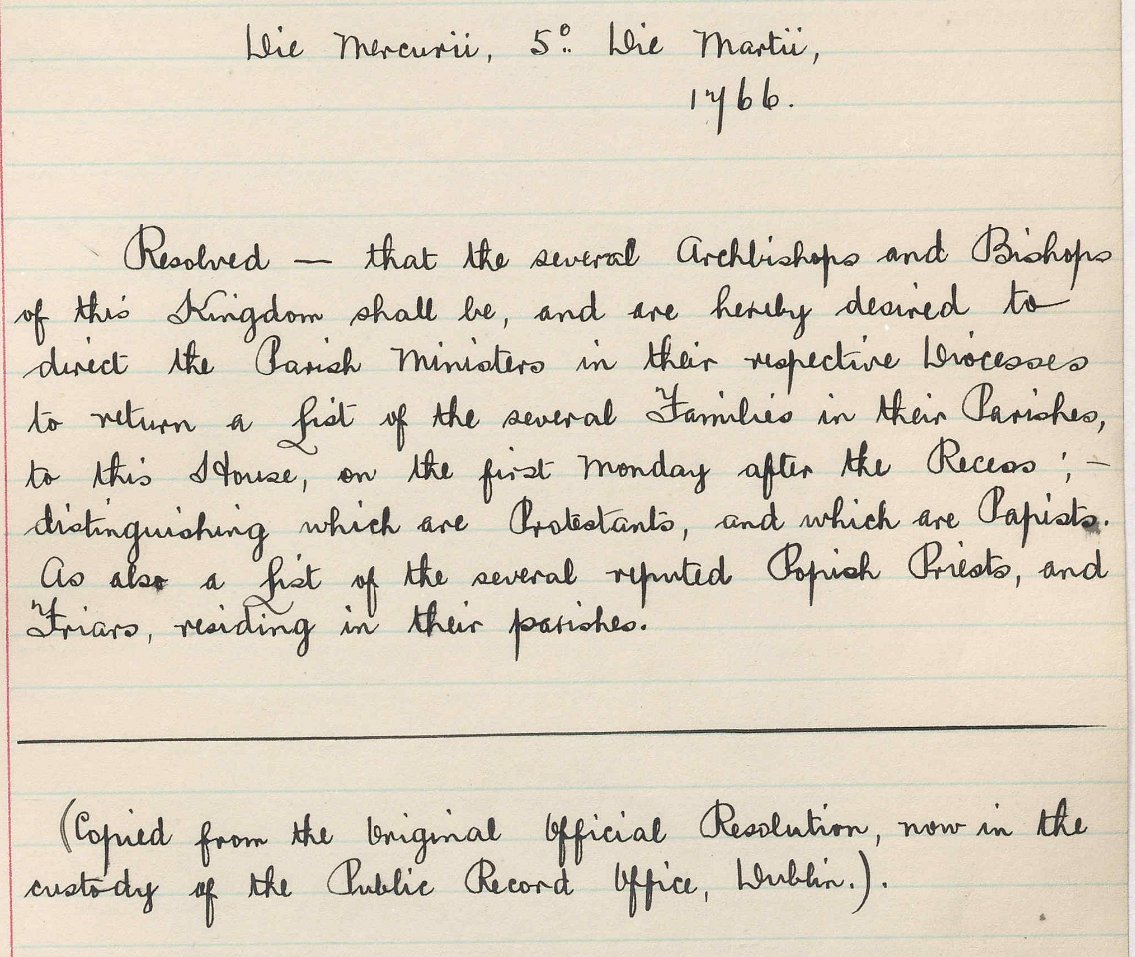 Die Mercurii, 5º. Die Martii,
1766.
Resolved — that the several Archbishops and Bishops
of this Kingdom shall be, and are hereby desired to
direct the Parish Ministers in their respective Diocesses
to return a List of the several Families in their Parishes,
to this House, on the first Monday after the Recess ; –
distinguishing which are Protestants, and which are Papists.
As also a List of the several reputed Popish Priests, and
Friars, residing in their parishes.
(Copied from the Original Official Resolution, now in the
custody of the Public Record Office, Dublin.).